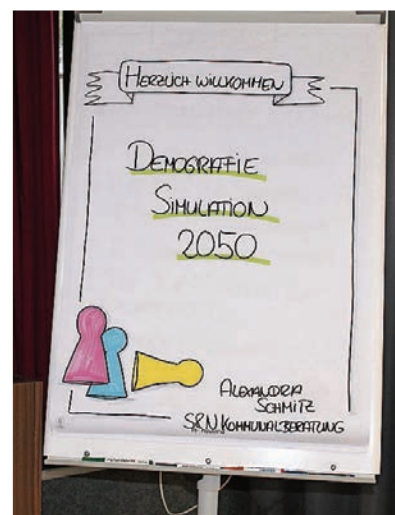 HERZLICH WILLKOMMEN
DEMOGRAFIE
SIMULATION
2050
ALEXANDRA
SCHMITZ
S&N KOMMUNALBERATUNG